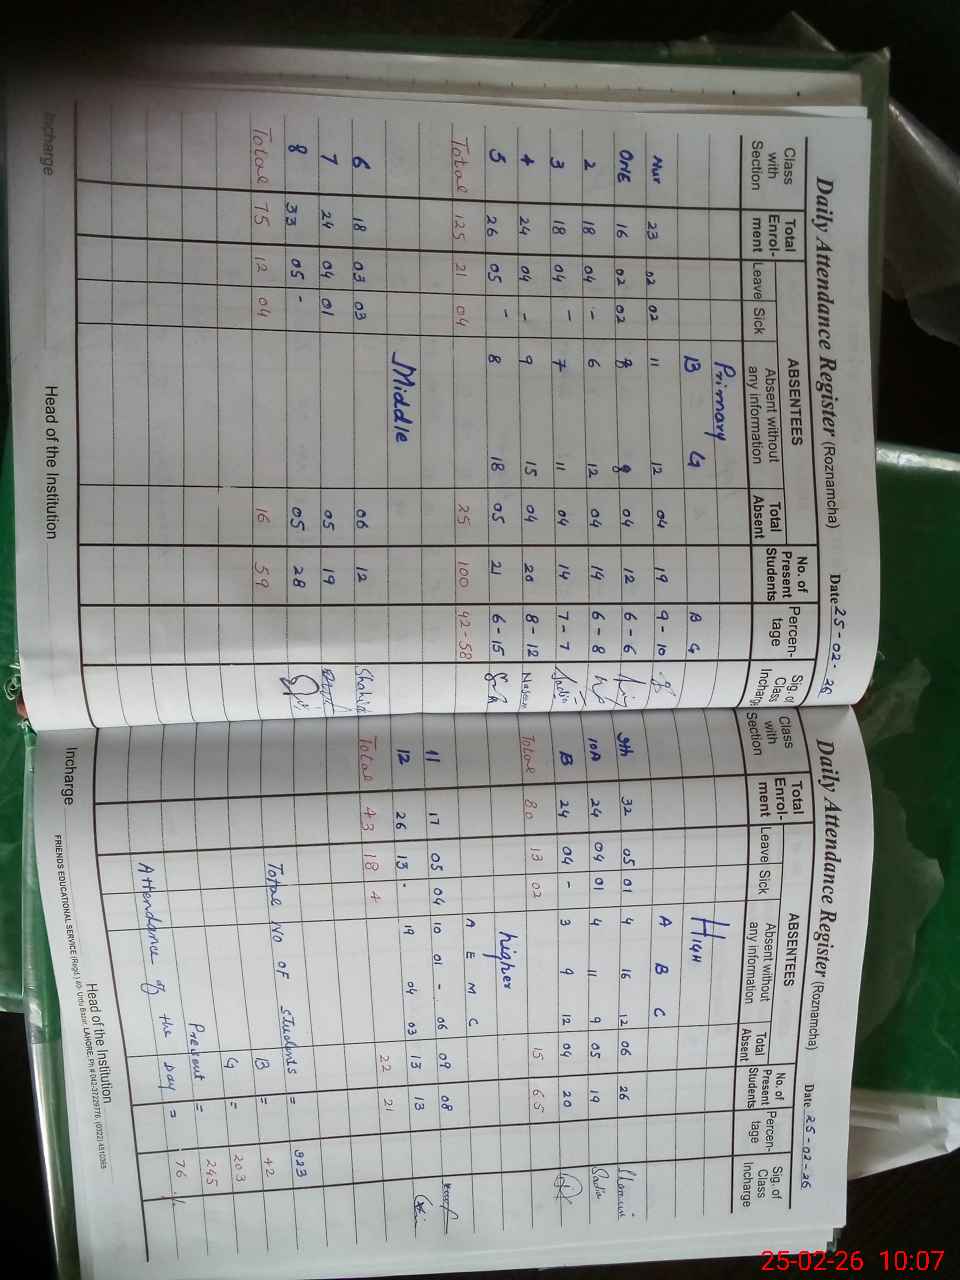 Daily Attendance Register (Roznamcha) Date 25-02-26
Class with Section Total Enrol-ment ABSENTEES Leave Sick Absent without any information Total Absent No. of Present Students Percen-tage Sig. of Class Incharge
Primary
B G B G
Nur 23 02 02 11 12 04 19 9-10
ONE 16 02 02 8 8 04 12 6-6
2 18 04 - 6 12 04 14 6-8
3 18 04 - 7 11 04 14 7-7 Sadia
4 24 04 - 9 15 04 20 8-12 Naseem
5 26 05 - 8 18 05 21 6-15
Total 125 21 04 25 100 42-58
Middle
6 18 03 03 06 12 Shahid
7 24 04 01 05 19
8 33 05 - 05 28
Total 75 12 04 16 59
Incharge Head of the Institution
Daily Attendance Register (Roznamcha) Date 25-02-26
Class with Section Total Enrol-ment ABSENTEES Leave Sick Absent without any information Total Absent No. of Present Students Percen-tage Sig. of Class Incharge
HIGH
A B C
9th 32 05 01 4 16 12 06 26
10A 24 04 01 4 11 9 05 19 Sadia
B 24 04 - 3 9 12 04 20
Total 80 13 02 15 65
higher
A E M C
11 17 05 04 10 01 - 06 09 08
12 26 13 - 19 04 03 13 13
Total 43 18 4 22 21
Total No OF Students = 323
B = 42
G = 203
Present = 245
Attendance of the Day = 76 %
Incharge Head of the Institution
FRIENDS EDUCATIONAL SERVICE (Regd.) 40- Urdu Bazar, LAHORE. Ph # 042-37229776, (0322) 4510365
25-02-26 10:07